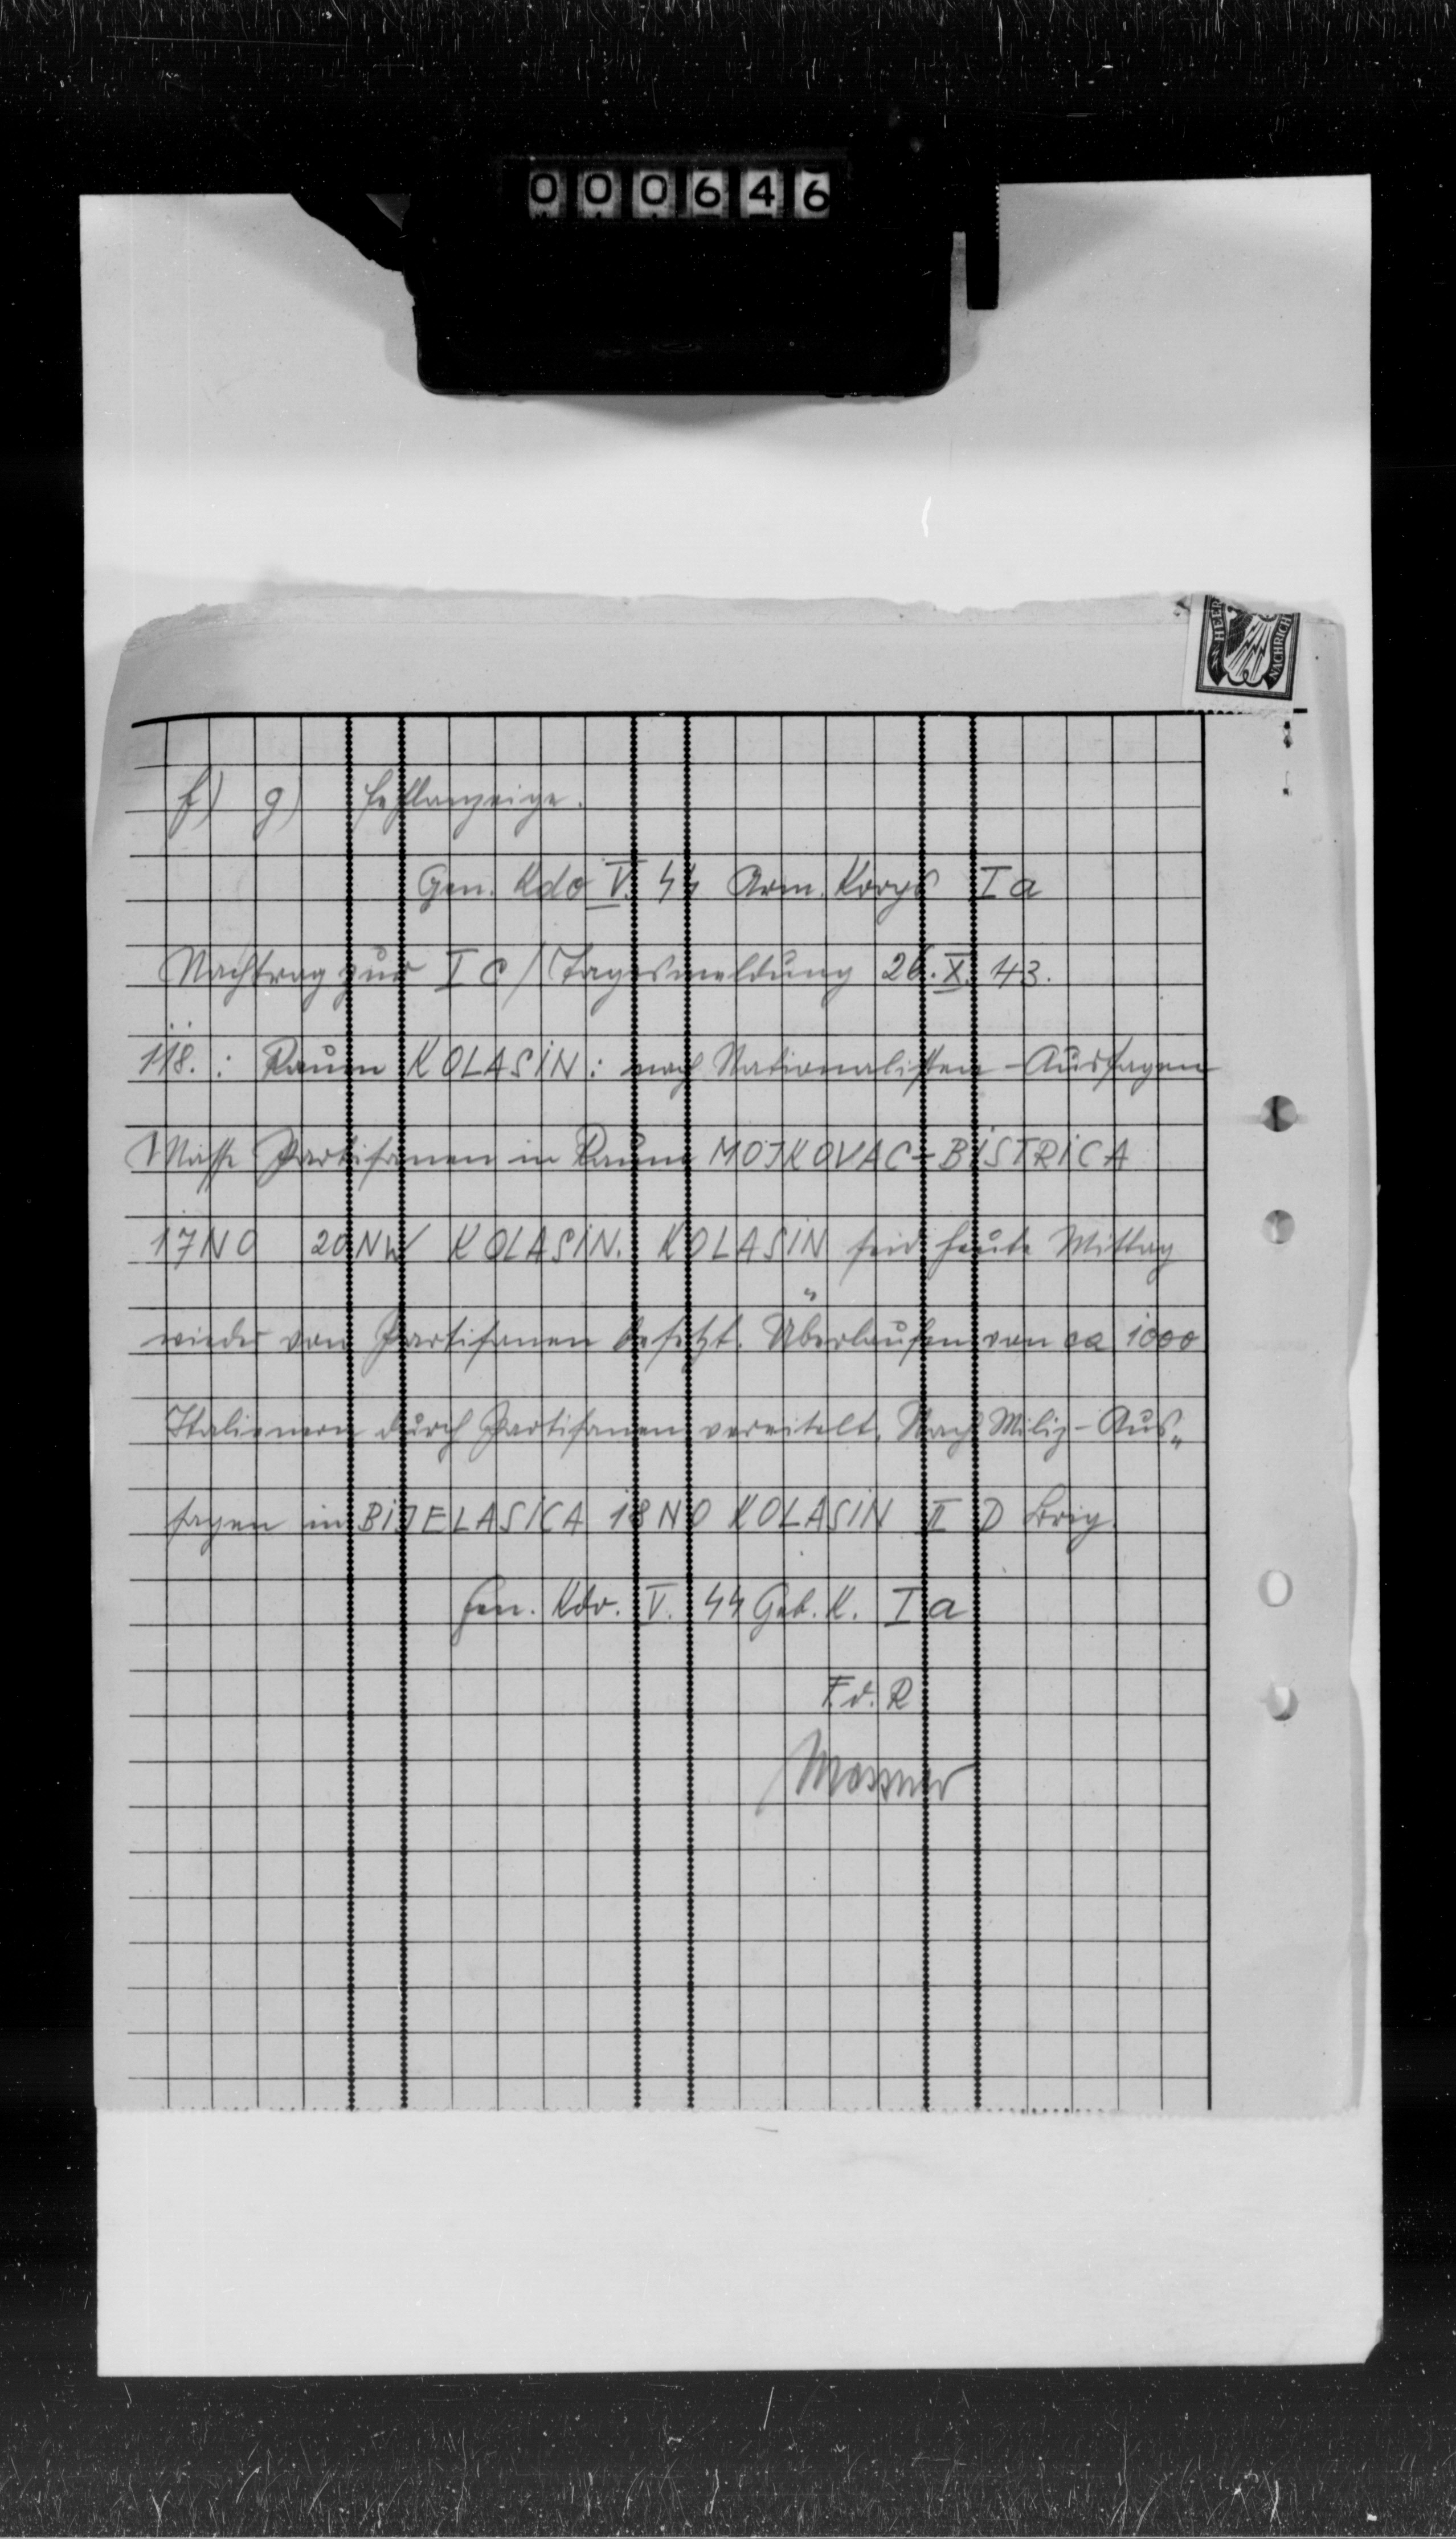 000646
HEER
NACHRICH
f) g) Fehlanzeige.
Gen. Kdo V. SS Arm. Korps Ia
Nachtrag zur I C / Tagesmeldung 26. X. 43.
118. : Raum KOLASIN : nach Nationalisten - Aussagen
Masse Partisanen in Raum MOJKOVAC - BISTRICA
17 NO 20 NW KOLASIN. KOLASIN seid heute Mittag
wieder von Partisanen besetzt. Überlaufen von ca 1000
Italienern durch Partisanen vereitelt. Nach Miliz - Aus„
sagen in BIJELASICA 18 NO KOLASIN II D Brig.
Gen. Kdo. V. SS Geb. K. Ia
F. d. R